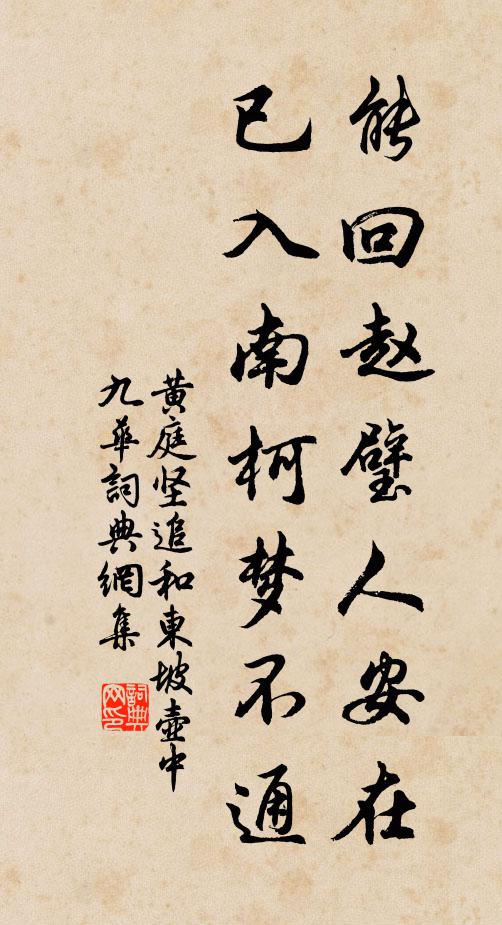 能回赵璧人安在
已入南柯梦不通
黄庭坚追和東坡壶中
九華詞典網集
詞典网印